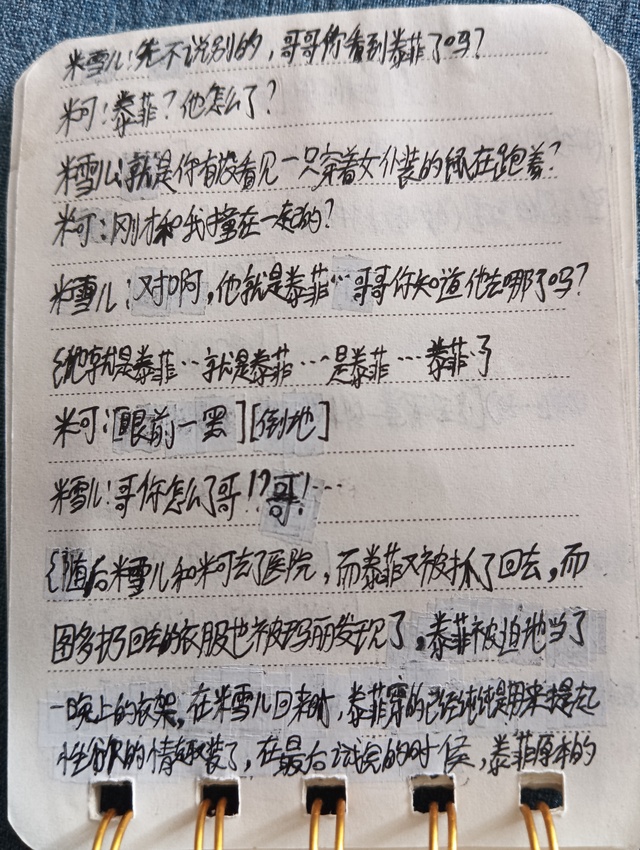 米雪儿:先不说别的,哥哥你看到泰菲了吗?
米可:泰菲?他怎么了?
米雪儿:就是你有没看见一只穿着女仆装的鼠在跑着?
米可:刚才和我撞在一起的?
米雪儿:对啊,他就是泰菲…哥哥你知道他去哪了吗?
{他就是泰菲…就是泰菲…是泰菲…泰菲…}
米可:[眼前一黑][倒地]
米雪儿:哥你怎么了哥!?哥!…
{随后米雪儿和米可去了医院,而泰菲又被抓了回去,而
图多扔回去的衣服也被玛丽发现了,泰菲被迫地当了
一晚上的衣架,在米雪儿回来时,泰菲穿的已经纯纯是用来提起
性欲的情趣装了,在最后试完的时候,泰菲原本的